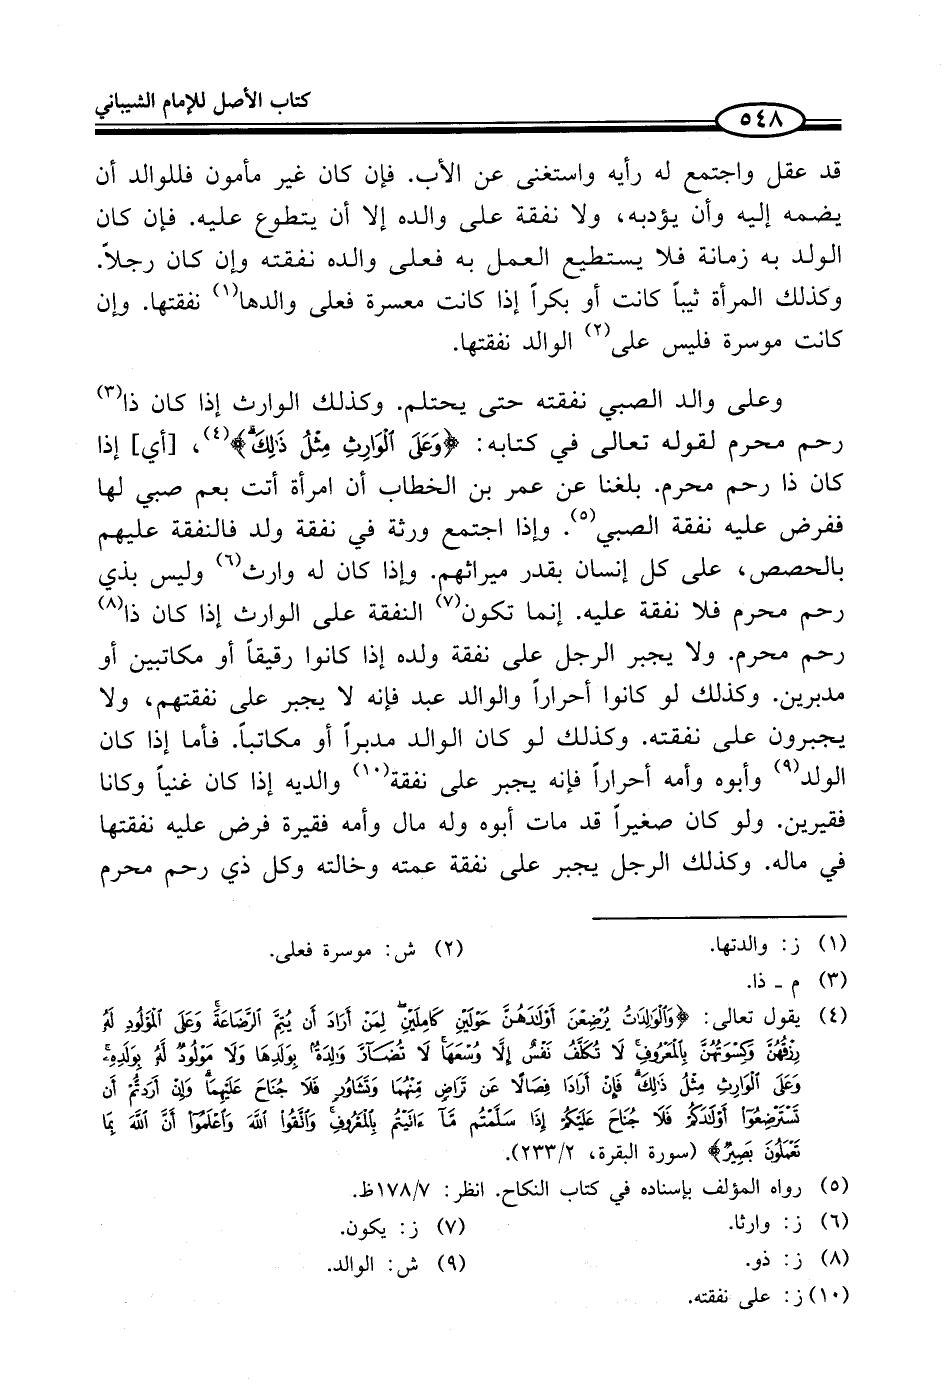 كتاب الأصل للإمام الشيباني
٥٤٨
قد عقل واجتمع له رأيه واستغنى عن الأب. فإن كان غير مأمون فللوالد أن
يضمه إليه وأن يؤدبه، ولا نفقة على والده إلا أن يتطوع عليه. فإن كان
الولد به زمانة فلا يستطيع العمل به فعلى والده نفقته وإن كان رجلاً.
وكذلك المرأة ثيباً كانت أو بكراً إذا كانت معسرة فعلى والدها(١) نفقتها. وإن
كانت موسرة فليس على(٢) الوالد نفقتها.
وعلى والد الصبي نفقته حتى يحتلم. وكذلك الوارث إذا كان ذا(٣)
رحم محرم لقوله تعالى في كتابه: ﴿وَعَلَى ٱلْوَارِثِ مِثْلُ ذَٰلِكَۗ﴾(٤)، [أي] إذا
كان ذا رحم محرم. بلغنا عن عمر بن الخطاب أن امرأة أتت بعم صبي لها
ففرض عليه نفقة الصبي(٥). وإذا اجتمع ورثة في نفقة ولد فالنفقة عليهم
بالحصص، على كل إنسان بقدر ميراثهم. وإذا كان له وارث(٦) وليس بذي
رحم محرم فلا نفقة عليه. إنما تكون(٧) النفقة على الوارث إذا كان ذا(٨)
رحم محرم. ولا يجبر الرجل على نفقة ولده إذا كانوا رقيقاً أو مكاتبين أو
مدبرين. وكذلك لو كانوا أحراراً والوالد عبد فإنه لا يجبر على نفقتهم، ولا
يجبرون على نفقته. وكذلك لو كان الوالد مدبراً أو مكاتباً. فأما إذا كان
الولد(٩) وأبوه وأمه أحراراً فإنه يجبر على نفقة(١٠) والديه إذا كان غنياً وكانا
فقيرين. ولو كان صغيراً قد مات أبوه وله مال وأمه فقيرة فرض عليه نفقتها
في ماله. وكذلك الرجل يجبر على نفقة عمته وخالته وكل ذي رحم محرم
(١) ز: والدتها. (٢) ش: موسرة فعلى.
(٣) م - ذا.
(٤) يقول تعالى: ﴿وَٱلْوَٰلِدَٰتُ يُرْضِعْنَ أَوْلَٰدَهُنَّ حَوْلَيْنِ كَامِلَيْنِۖ لِمَنْ أَرَادَ أَن يُتِمَّ ٱلرَّضَاعَةَۚ وَعَلَى ٱلْمَوْلُودِ لَهُۥ
رِزْقُهُنَّ وَكِسْوَتُهُنَّ بِٱلْمَعْرُوفِۚ لَا تُكَلَّفُ نَفْسٌ إِلَّا وُسْعَهَاۚ لَا تُضَآرَّ وَٰلِدَةُۢ بِوَلَدِهَا وَلَا مَوْلُودٌ لَّهُۥ بِوَلَدِهِۦۚ
وَعَلَى ٱلْوَارِثِ مِثْلُ ذَٰلِكَۗ فَإِنْ أَرَادَا فِصَالًا عَن تَرَاضٍ مِّنْهُمَا وَتَشَاوُرٍ فَلَا جُنَاحَ عَلَيْهِمَاۗ وَإِنْ أَرَدتُّمْ أَن
تَسْتَرْضِعُوٓا۟ أَوْلَٰدَكُمْ فَلَا جُنَاحَ عَلَيْكُمْ إِذَا سَلَّمْتُم مَّآ ءَاتَيْتُم بِٱلْمَعْرُوفِۗ وَٱتَّقُوا۟ ٱللَّهَ وَٱعْلَمُوٓا۟ أَنَّ ٱللَّهَ بِمَا
تَعْمَلُونَ بَصِيرٌ﴾ (سورة البقرة، ٢٣٣/٢).
(٥) رواه المؤلف بإسناده في كتاب النكاح. انظر: ١٧٨/٧ظ.
(٦) ز: وارثا. (٧) ز: يكون.
(٨) ز: ذو. (٩) ش: الوالد.
(١٠) ز: على نفقته.